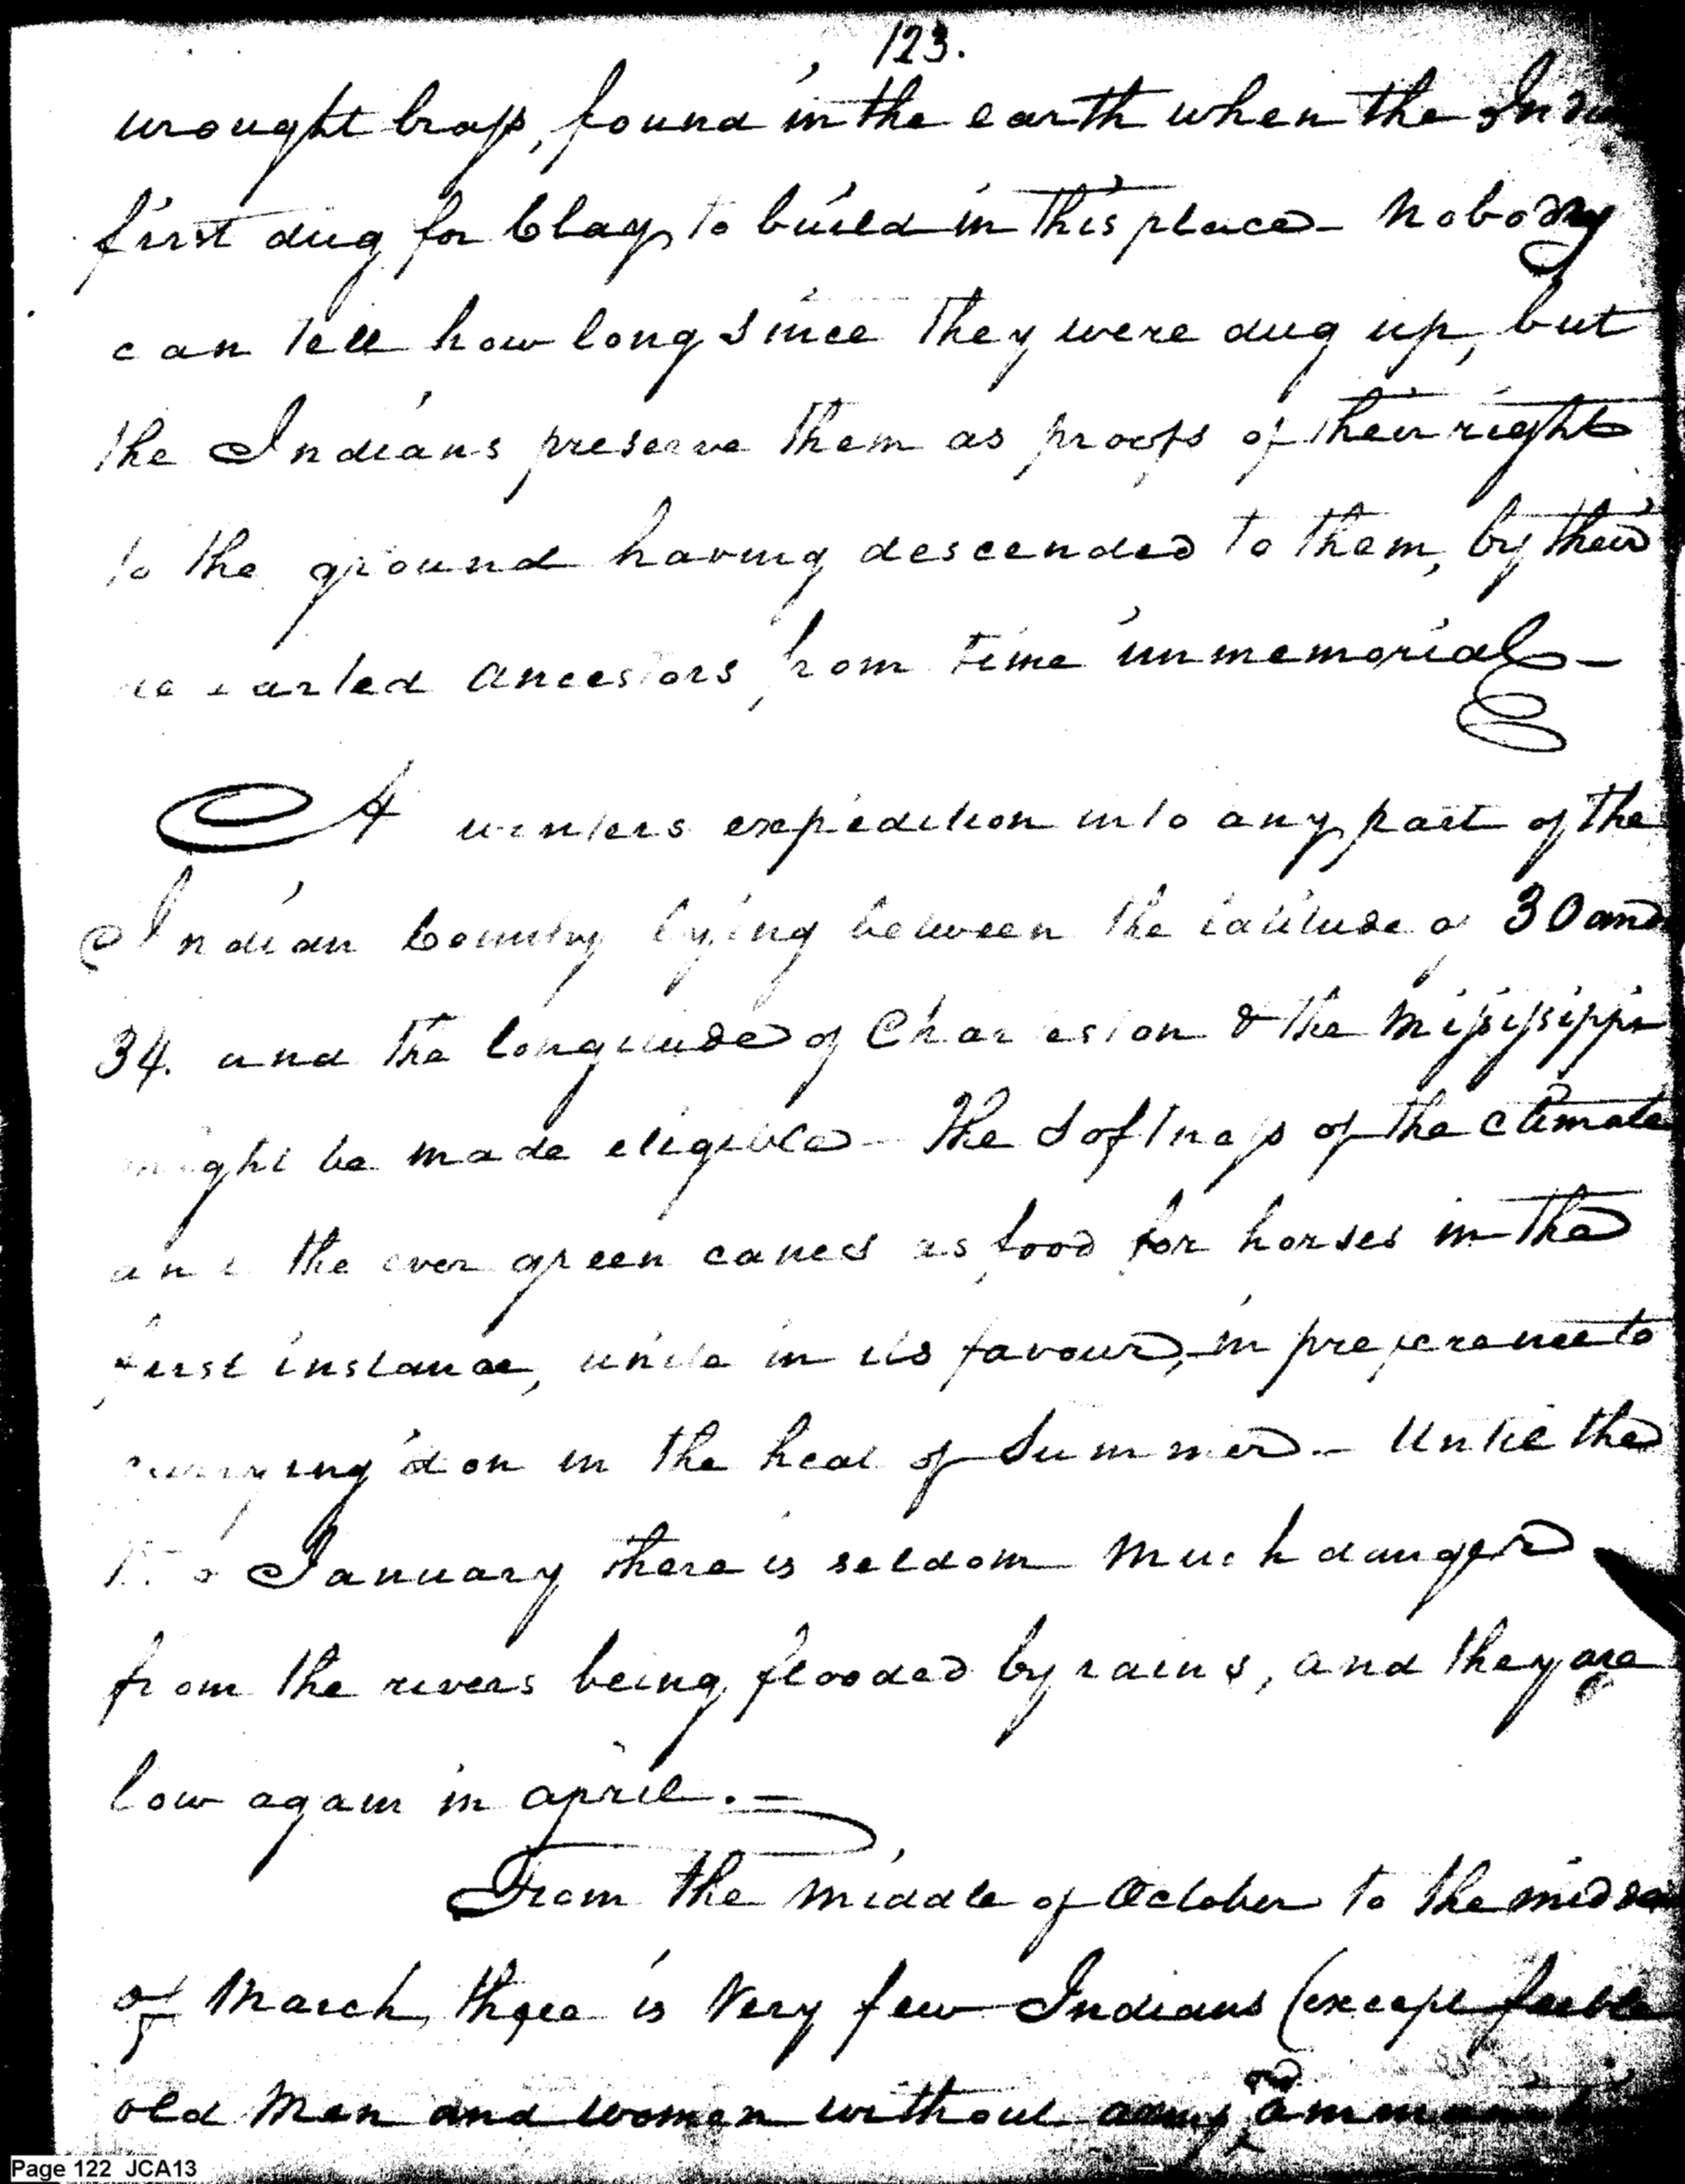 123.
wrought brass, found in the earth when the
first dug for Clay to build in this place - nobody
can tell how long since they were dug up, but
the Indians preserve them as proofs of their right
to the ground having descended to them, by their
departed ancestors from time immemorial -
A winters expedition into any part of the
Indian Country lying between the latitude of 30 and
34. and the longitude of Charleston & the Mississippi
might be made eligible - The softness of the climate
and the ever green canes as food for horses in the
first instance, unite in its favour, in preference to
carrying it on in the heat of Summer. - Until the
January there is seldom much danger
from the rivers being flooded by rains, and they are
low again in april. -
From the middle of October to the middle
of March, there is very few Indians (except feeble
old men and women without arms and ammunition
Page 122 JCA13